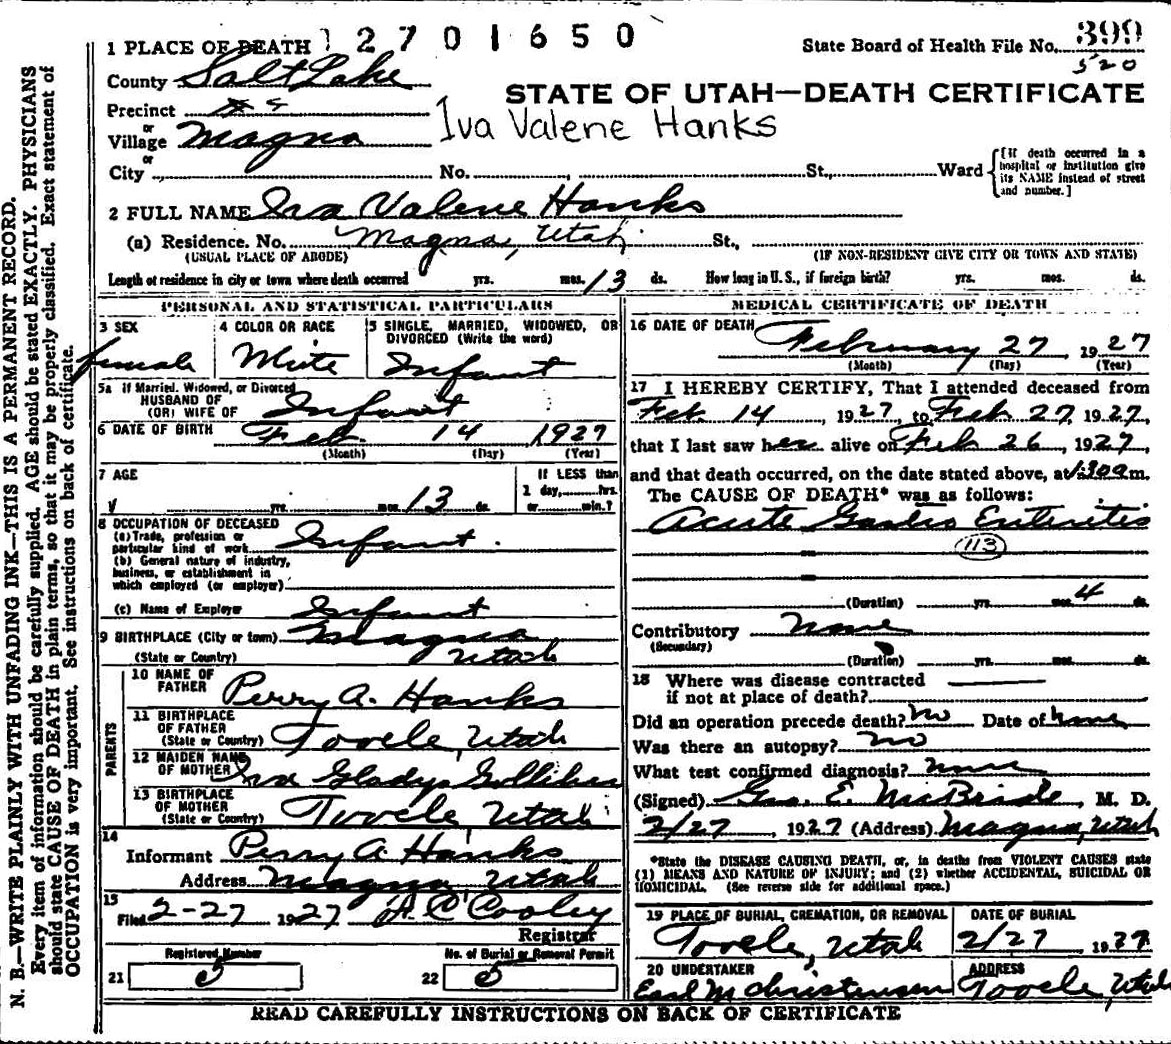 N. B.—WRITE PLAINLY WITH UNFADING INK—THIS IS A PERMANENT RECORD.
Every item of information should be carefully supplied. AGE should be stated EXACTLY. PHYSICIANS
should state CAUSE OF DEATH in plain terms, so that it may be properly classified. Exact statement of
OCCUPATION is very important. See instructions on back of certificate.
12701650
State Board of Health File No. 399
520
1 PLACE OF DEATH
County Salt Lake
STATE OF UTAH—DEATH CERTIFICATE
Precinct
or
Village Magna
Iva Valene Hanks
or
City No. St., Ward
[If death occurred in a
hospital or institution give
its NAME instead of street
and number.]
2 FULL NAME Iva Valene Hanks
(a) Residence. No. Magna, Utah St.,
(USUAL PLACE OF ABODE) (IF NON-RESIDENT GIVE CITY OR TOWN AND STATE)
Length of residence in city or town where death occurred yrs. mos. 13 ds. How long in U. S., if foreign birth? yrs. mos. ds.
PERSONAL AND STATISTICAL PARTICULARS
3 SEX
female
4 COLOR OR RACE
White
5 SINGLE, MARRIED, WIDOWED, OR
DIVORCED (Write the word)
Infant
5a If Married, Widowed, or Divorced
HUSBAND OF
(OR) WIFE OF Infant
6 DATE OF BIRTH Feb. 14 1927
(Month) (Day) (Year)
7 AGE
yrs. mos. 13 ds.
If LESS than
1 day, hrs.
or min.?
8 OCCUPATION OF DECEASED
(a) Trade, profession or
particular kind of work Infant.
(b) General nature of industry,
business, or establishment in
which employed (or employer)
(c) Name of Employer Infant
9 BIRTHPLACE (City or town) Magna
(State or Country) Utah
PARENTS
10 NAME OF
FATHER Perry A. Hanks
11 BIRTHPLACE
OF FATHER
(State or Country) Tooele, Utah
12 MAIDEN NAME
OF MOTHER Iva Gladys
13 BIRTHPLACE
OF MOTHER
(State or Country) Tooele, Utah
14
Informant Perry A. Hanks
Address Magna Utah
15
Filed 2-27 1927 A. C. Cooley
Registrar
Registered Number
21 5
No. of Burial or Removal Permit
22 5
MEDICAL CERTIFICATE OF DEATH
16 DATE OF DEATH February 27 1927
(Month) (Day) (Year)
17 I HEREBY CERTIFY, That I attended deceased from
Feb 14, 1927, to Feb 27, 1927,
that I last saw her alive on Feb 26, 1927,
and that death occurred, on the date stated above, at 1:30am.
The CAUSE OF DEATH* was as follows:
Acute Gastro Enteritis
113
(Duration) yrs. mos. 4 ds.
Contributory None
(Secondary)
(Duration) yrs. mos. ds.
18 Where was disease contracted
if not at place of death?
Did an operation precede death? No Date of None
Was there an autopsy? No
What test confirmed diagnosis? None
(Signed) Geo. E. McBride, M. D.
2/27, 1927 (Address) Magna, Utah
*State the DISEASE CAUSING DEATH, or, in deaths from VIOLENT CAUSES state
(1) MEANS AND NATURE OF INJURY; and (2) whether ACCIDENTAL, SUICIDAL OR
HOMICIDAL. (See reverse side for additional space.)
19 PLACE OF BURIAL, CREMATION, OR REMOVAL
Tooele, Utah
DATE OF BURIAL
2/27 1927
20 UNDERTAKER
Earl M Christensen
ADDRESS
Tooele, Utah
READ CAREFULLY INSTRUCTIONS ON BACK OF CERTIFICATE